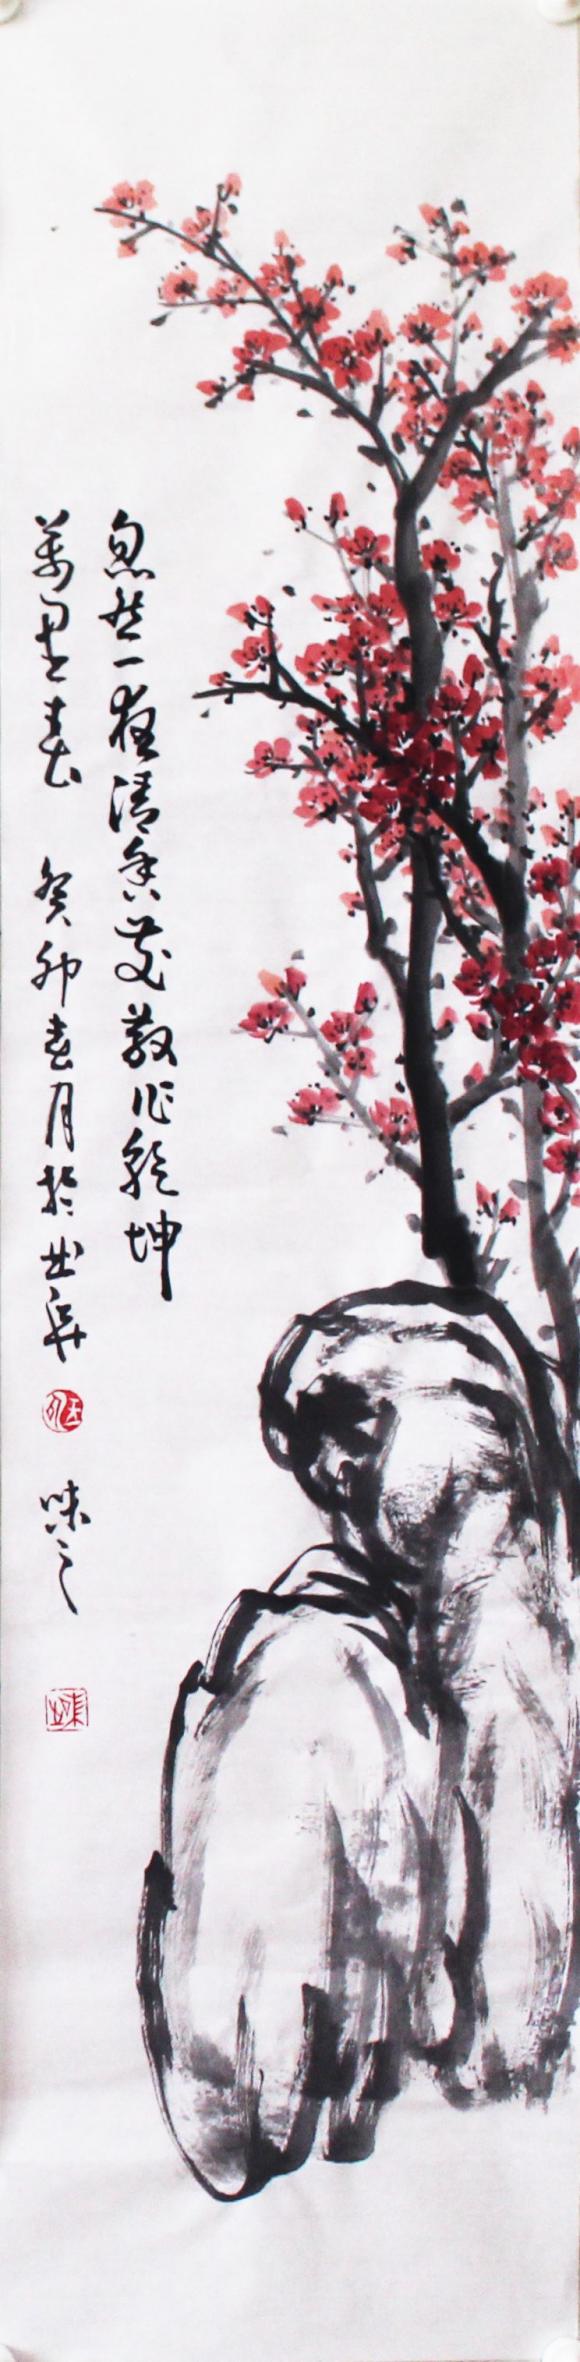 忽然一夜清香發散作乾坤
萬里春 癸卯春月於曲阜
味之